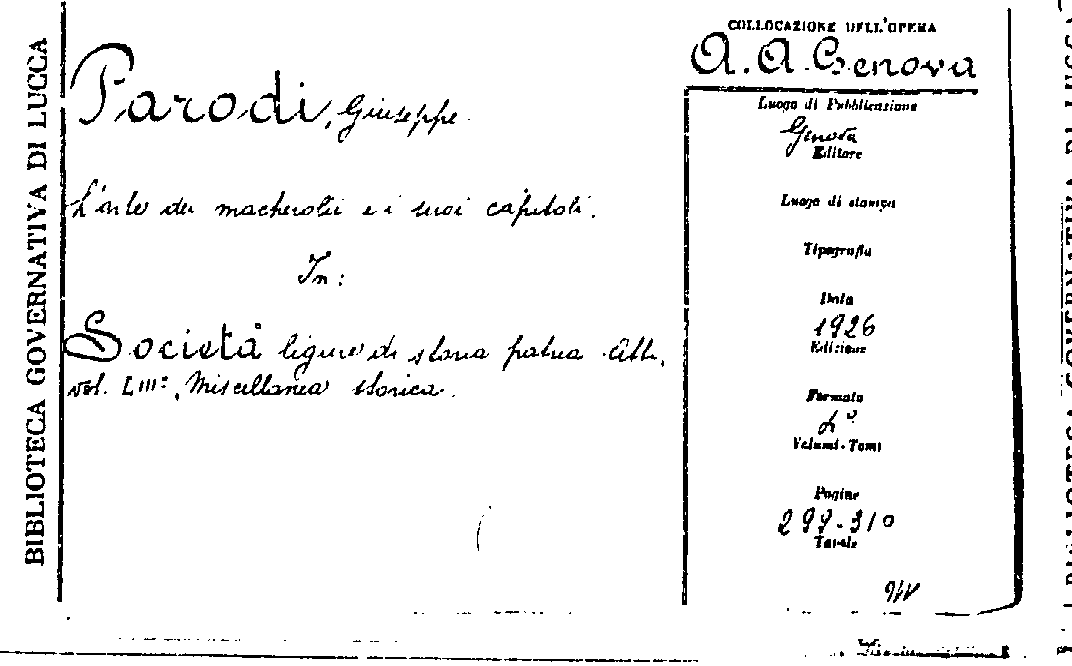 BIBLIOTECA GOVERNATIVA DI LUCCA
Parodi, Giuseppe.
L'arte dei macherolii e i suoi capitoli.
In:
Società ligure di storia patria. Atti,
vol. LIII°, Miscellanea storica.
COLLOCAZIONE DELL'OPERA
A. A. Genova
Luogo di Pubblicazione
Genova
Editore
Luogo di stampa
Tipografia
Data
1926
Edizione
Formato
Volumi-Tomi
Pagine
299-310
Tavole